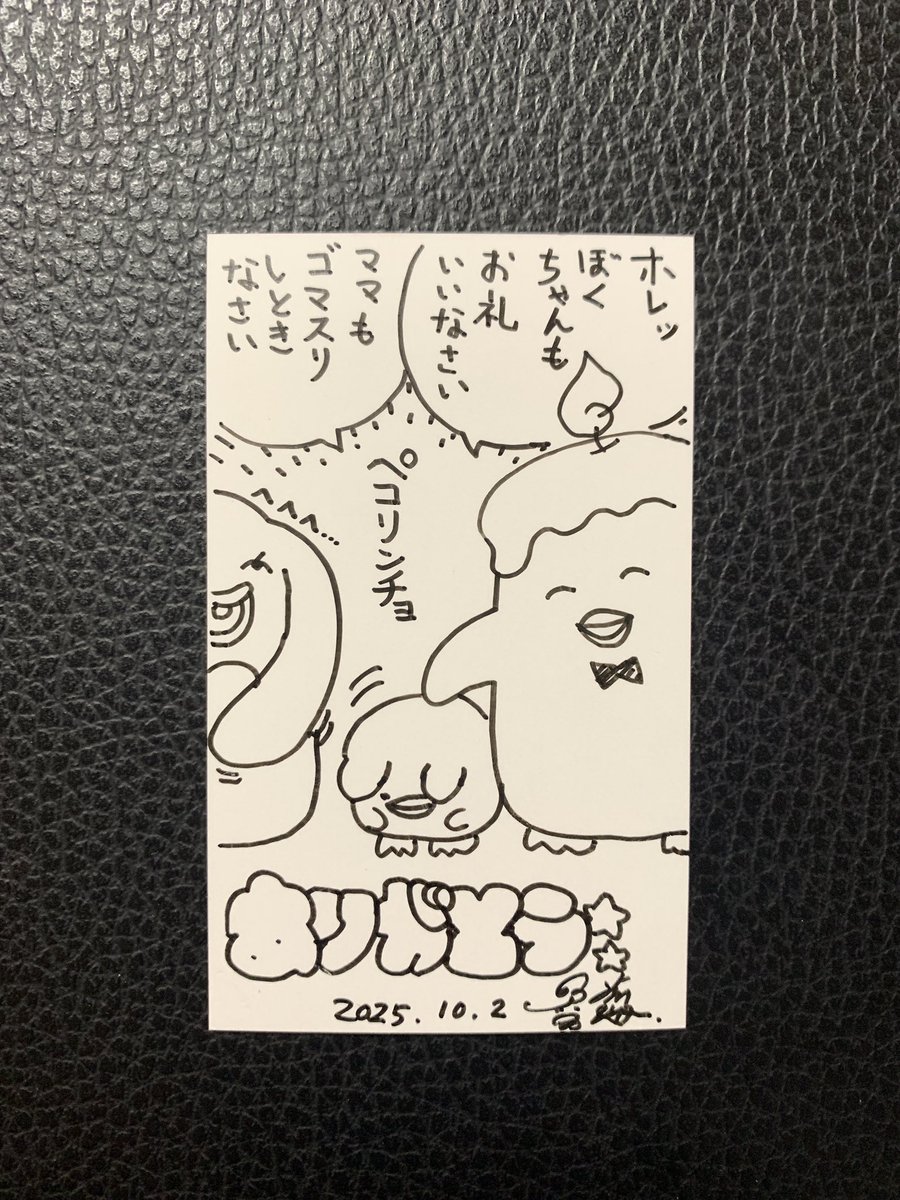 ホレッ
ぼく
ちゃんも
お礼
いいなさい
ママも
ゴマスリ
しとき
なさい
ペコリンチョ
ありがとう
2025.10.2